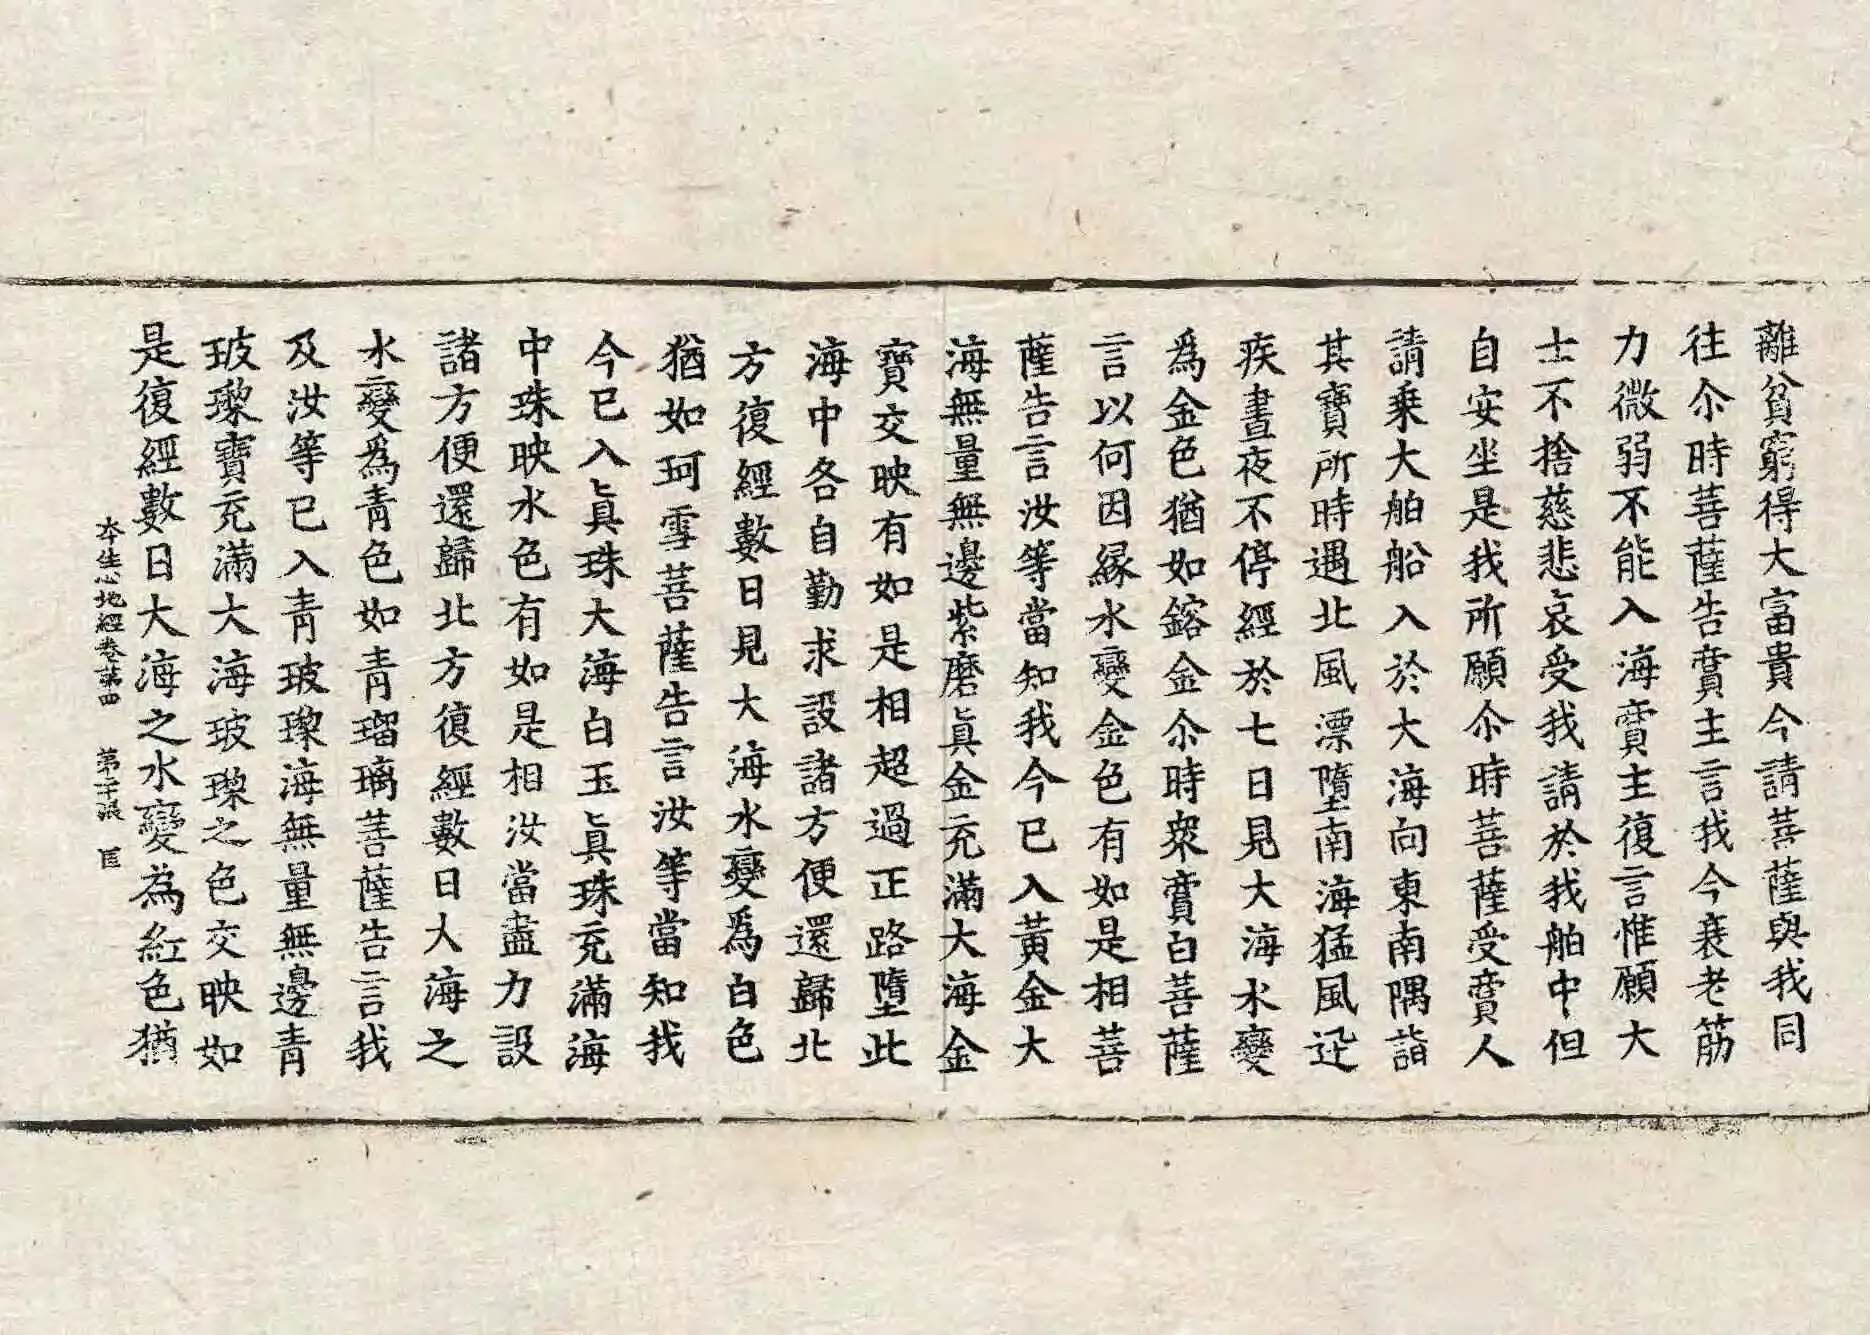 離貧窮得大富貴今請菩薩與我同
往尒時菩薩告賣主言我今衰老筋
力微弱不能入海賣主復言惟願大
士不捨慈悲哀受我請於我舶中但
自安坐是我所願尒時菩薩受賣人
請乗大舶船入於大海向東南隅詣
其寶所時遇北風漂墮南海猛風迅
疾晝夜不停經於七日見大海水變
爲金色猶如鎔金尒時衆賣白菩薩
言以何因縁水變金色有如是相菩
薩告言汝等當知我今已入黃金大
海無量無邊紫磨真金充滿大海金
寶交映有如是相超過正路墮此
海中各自勤求設諸方便還歸北
方復經數日見大海水變爲白色
猶如珂雪菩薩告言汝等當知我
今已入真珠大海白玉真珠充滿海
中珠映水色有如是相汝當盡力設
諸方便還歸北方復經數日大海之
水變爲青色如青瑠璃菩薩告言我
及汝等已入青玻瓈海無量無邊青
玻瓈寶充滿大海玻瓈之色交映如
是復經數日大海之水變為紅色猶
本生心地經卷第四 第二十張 匡